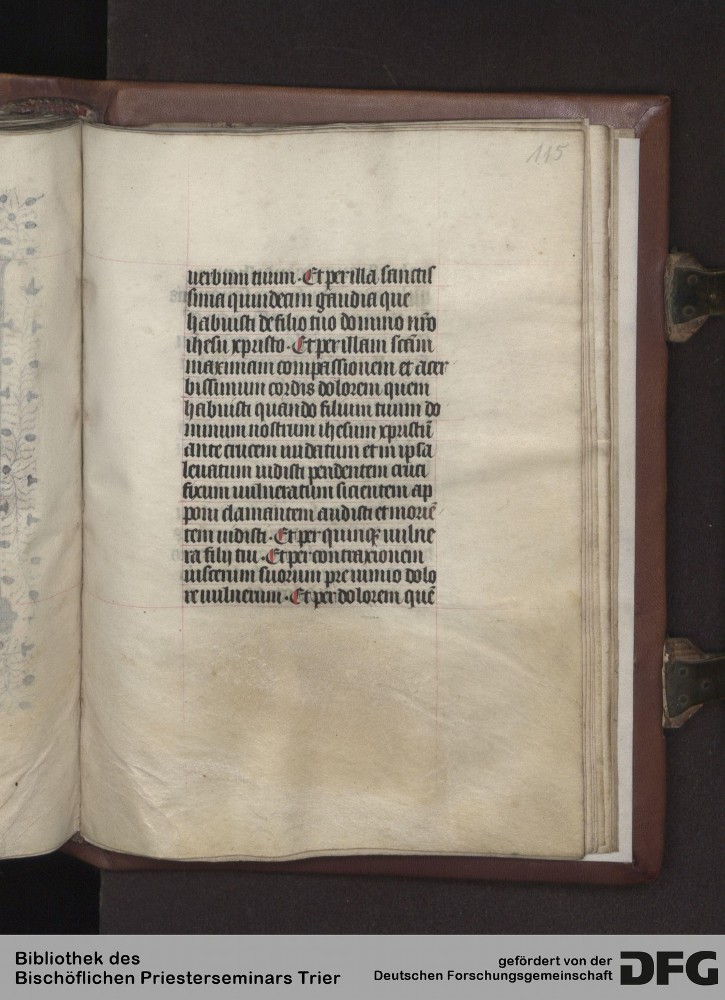 115
uerbum tuum · Et per illa sanctis
sima quindecim gaudia que
habuisti de filio tuo domino nr̄o
ihesu xpristo · Et per illam sc̄am
maximam compassionem et acer
bissimum cordis dolorem quem
habuisti quando filium tuum do
minum nostrum ihesum xpristū
ante crucem nudatum et in ipsa
leuatum uidisti pendentem cruci
fixum uulneratum sicientem ap
poni clamantem audisti et moriē
tem uidisti · Et per quinqꝫ uulne
ra filij tui · Et per contraxionem
uiscerum suorum pre nimio dolo
re uulnerum · Et per dolorem quē
Bibliothek des
Bischöflichen Priesterseminars Trier
gefördert von der
Deutschen Forschungsgemeinschaft
DFG